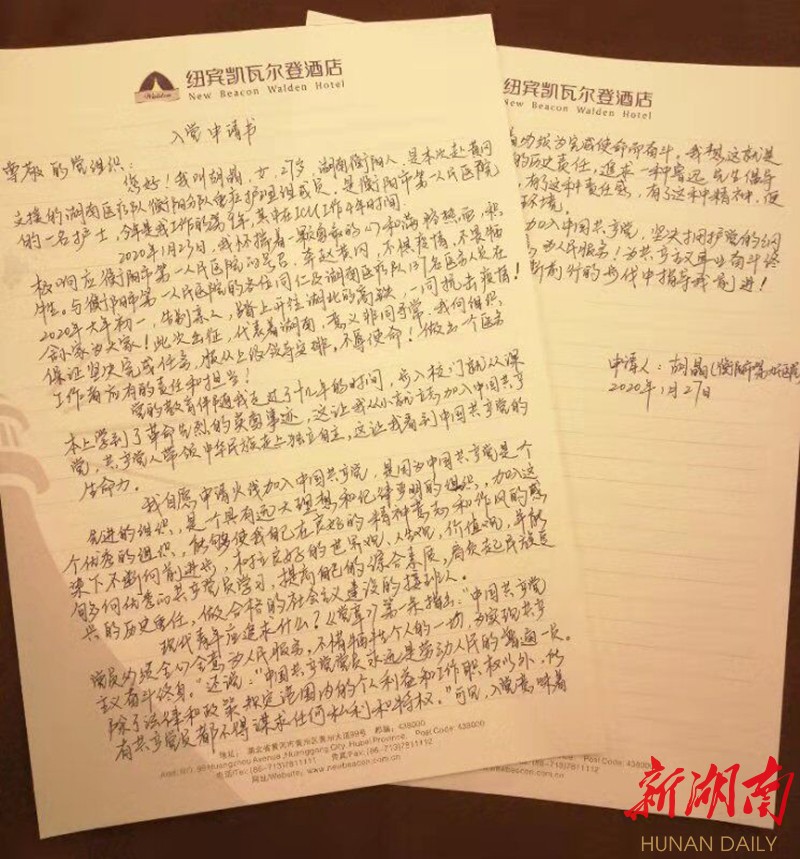 纽宾凯瓦尔登酒店
New Beacon Walden Hotel
入党申请书
尊敬的党组织：
您好！我叫胡晶，女，27岁，湖南衡阳人，是本次赴黄冈
支援的湖南医疗队衡阳分队重症护理组成员，是衡阳市第一人民医院
的一名护士，今年是我工作的第 年，其中在ICU工作4年时间。
2020年1月25日，我怀揣着一颗勇敢的心和满腔热血，积
极响应衡阳市第一人民医院的号召，奔赴黄冈，不惧疫情，不畏牺
牲。与衡阳市第一人民医院的各位同仁及湖南医疗队137名医务人员在
2020年大年初一，告别亲人，踏上开往湖北的高铁，一同抗击疫情！
舍小家为大家！此次出征，代表着湖南，意义非同寻常，我向组织
保证坚决完成任务，服从上级领导安排，不辱使命！做出一个医务
工作者应有的责任和担当！
党的教育伴随我走过了十几年的时间，步入校门就从课
本上学到了革命先烈的英勇事迹，这让我从小就立志加入中国共产
党，共产党人带领中华民族走上独立自主，这让我看到中国共产党的
生命力。
我自愿申请火线加入中国共产党，是因为中国共产党是个
先进的组织，是个具有远大理想和纪律严明的组织，加入这
个优秀的组织，能够使我自己在良好的精神 和作风的感
染下不断向前进步，和树立良好的世界观，人生观，价值观，并能
够多向优秀的共产党员学习，提高自己的综合素质，肩负起民族复
兴的历史责任，做合格的社会主义建设的接班人。
现代青年应追求什么？《党章》第一条指出："中国共产党
党员必须全心全意为人民服务，不惜牺牲个人的一切，为实现共产
主义奋斗终身。"还说："中国共产党党员永远是劳动人民的普通一员。
除了法律和政策规定范围内的个人利益和工作职权以外，所
有共产党员都不得谋求任何私利和特权。"可见，入党意味着
地址：湖北省黄冈市黄州区黄州大道99号 邮编：438000
Huangzhou Avenue, Huanggang City, Hubei Province Post Code: 438000
电话/Tel: (86-713)7811111 传真/Fax: (86-713)7811112
网址/Website: www.newbeacon.com.cn
纽宾凯瓦尔登酒店
New Beacon Walden Hotel
着必须为完成使命而奋斗。我想这就是
的历史责任，追求一种鲁迅先生倡导
有了这种责任感，有了这种精神，便
环境。
加入中国共产党，坚决拥护党的纲
为人民服务！为共产主义事业奋斗终
断前行的步伐中指导我前进！
申请人：胡晶（衡阳市第一人民医院）
2020年1月27日
Post Code: 438000
7811112
新湖南
HUNAN DAILY